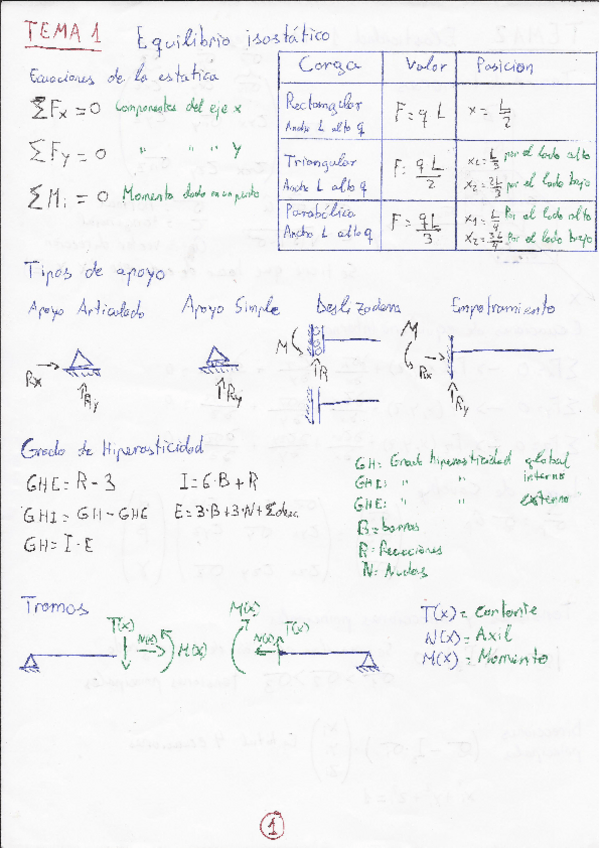 TEMA 1 Equilibrio isostático
Ecuaciones de la estatica
ΣFx = 0 Componentes del eje x
ΣFy = 0 " " " y
ΣMi = 0 Momento dado en un punto
Carga Valor Posicion
Rectangular
Ancho L alto q
F = q L
x = L/2
Triangular
Ancho L alto q
F = qL/2
x1 = L/3 por el lado alto
x2 = 2L/3 por el lado bajo
Parabólica
Ancho L alto q
F = qL/3
x1 = L/4 Por el lado alto
x2 = 3L/4 Por el lado bajo
Tipos de apoyo
Apoyo Articulado Apoyo Simple Deslizadera Empotramiento
Rx Ry
Ry
M R
M Rx Ry
Grado de Hiperasticidad
GHE = R - 3 I = 6·B + R
GHI = GH - GHE
GH = I - E
GH: Grado hiperasticidad global
GHI: " " interno
GHE: " " externo
B = barras
R = Reacciones
N = Nudos
Tramos
T(x) N(x) M(x)
M(x) N(x) T(x)
T(x) = Cortante
N(x) = Axil
M(x) = Momento
1